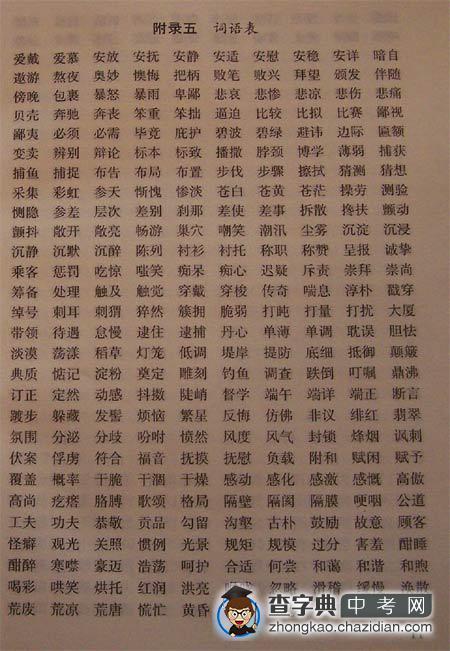 附录五 词语表
爱戴 爱慕 安放 安抚 安静 安适 安慰 安稳 安详 暗自
遨游 熬夜 奥妙 懊悔 把柄 败笔 败兴 拜望 颁发 伴随
傍晚 包裹 暴怒 暴雨 卑鄙 悲哀 悲惨 悲凉 悲伤 悲痛
贝壳 奔驰 奔丧 笨重 笨拙 逼迫 比较 比拟 比赛 鄙视
鄙夷 必须 必需 毕竟 庇护 碧波 碧绿 避讳 边际 匾额
变卖 辨别 辩论 标本 标致 播撒 脖颈 博学 薄弱 捕获
捕鱼 捕捉 布告 布局 布置 步伐 步骤 擦拭 猜测 猜想
采集 彩虹 参天 惭愧 惨淡 苍白 苍黄 苍茫 操劳 测验
恻隐 参差 层次 差别 刹那 差使 差事 拆散 搀扶 颤动
颤抖 敞开 敞亮 畅游 巢穴 嘲笑 潮汛 尘雾 沉淀 沉浸
沉静 沉默 沉醉 陈列 衬衫 衬托 称职 称赞 呈报 诚挚
乘客 惩罚 吃惊 嗤笑 痴呆 痴心 迟疑 斥责 崇拜 崇尚
筹备 处理 触及 触觉 穿戴 穿梭 传奇 喘息 淳朴 戳穿
绰号 刺耳 刺猬 猝然 簇拥 脆弱 打盹 打量 打扰 大厦
带领 待遇 怠慢 逮住 逮捕 丹心 单薄 单调 耽误 胆怯
淡漠 荡漾 稻草 灯笼 低调 堤岸 提防 底细 抵御 颠簸
典质 惦记 淀粉 奠定 雕刻 钓鱼 调查 跌倒 叮嘱 鼎沸
订正 定然 动感 抖擞 陡峭 督学 端午 端详 端正 断言
踱步 躲藏 发髻 烦恼 繁星 反悔 仿佛 非议 绯红 翡翠
氛围 分泌 分歧 吩咐 愤然 风度 风气 封锁 烽烟 讽刺
伏案 俘虏 符合 福音 抚摸 抚慰 负载 附和 赋闲 赋予
覆盖 概率 干脆 干涸 干燥 感动 感化 感激 感慨 高傲
高尚 疙瘩 胳膊 歌颂 格局 隔壁 隔阂 隔膜 哽咽 公道
工夫 功夫 恭敬 贡品 勾留 沟壑 古朴 鼓励 故意 顾客
怪癖 观光 关照 惯例 光景 规矩 规模 过分 害羞 酣睡
酣醉 寒噤 豪迈 浩荡 呵护 合适 何尝 和蔼 和谐 和煦
喝彩 哄笑 烘托 红润 洪亮 忽略 滑稽 缓慢 涣散
荒废 荒凉 荒唐 慌忙 黄昏
查字典 中考网
zhongkao.chazidian.com